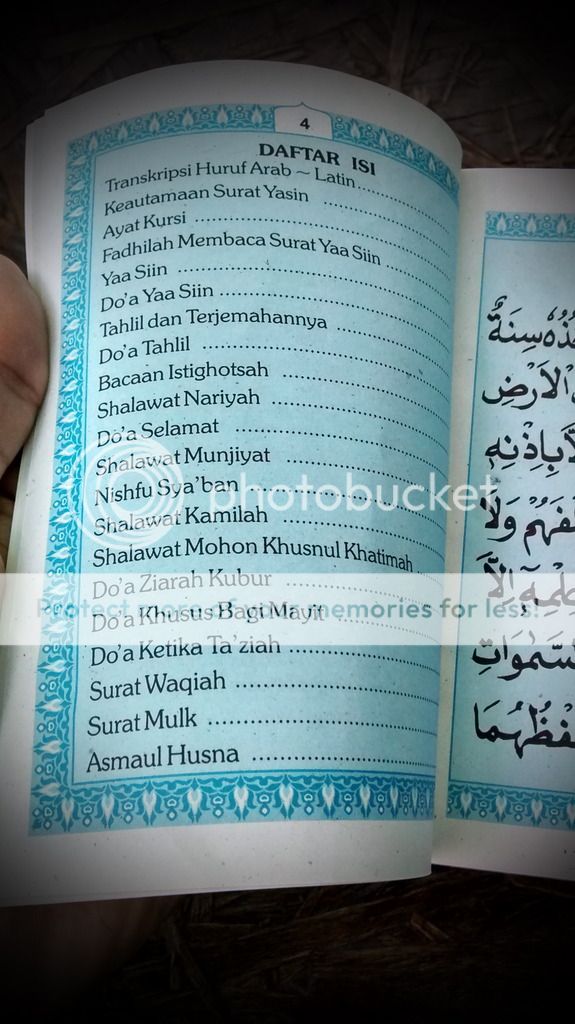 4
DAFTAR ISI
Transkripsi Huruf Arab ~ Latin................
Keautamaan Surat Yasin ........................
Ayat Kursi ................................................
Fadhilah Membaca Surat Yaa Siin ..........
Yaa Siin ....................................................
Do'a Yaa Siin ............................................
Tahlil dan Terjemahannya ......................
Do'a Tahlil ................................................
Bacaan Istighotsah ..................................
Shalawat Nariyah ....................................
Do'a Selamat ............................................
Shalawat Munjiyat ..................................
Nishfu Sya'ban ........................................
Shalawat Kamilah ....................................
Shalawat Mohon Khusnul Khatimah......
Do'a Ziarah Kubur ..................................
Do'a Khusus Bagi Mayit ..........................
Do'a Ketika Ta'ziah ................................
Surat Waqiah ..........................................
Surat Mulk ..............................................
Asmaul Husna ........................................
photobucket
Protect more of your memories for less!
سِنَةٌ
الْاَرْضِ
بِاِذْنِهٖ
وَلَا
اِلَّا